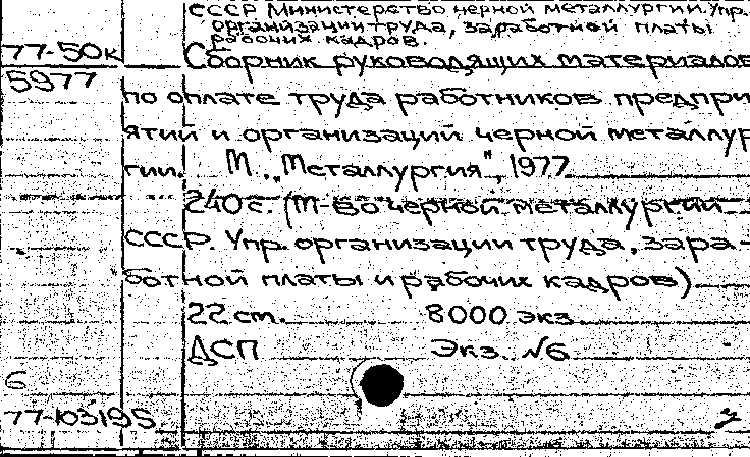 СССР Министерство черной металлургии. Упр.
организации труда, заработной платы
рабочих кадров.
77-50к Сборник руководящих материалов
5977
по оплате труда работников предпри
ятий и организаций черной металлур
гии. М., "Металлургия", 1977
240 с. (М-во черной металлургии
СССР. Упр. организации труда, зара-
ботной платы и рабочих кадров)
22 см. 8000 экз.
ДСП Экз. №6
6
77-103195